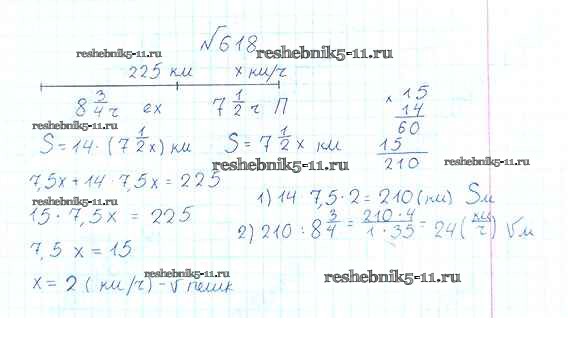 №618
reshebnik5-11.ru
reshebnik5-11.ru
225 км x км/ч
8 3/4 ч ех 7 1/2 ч П
reshebnik5-11.ru
S = 14 · (7 1/2 x) км S = 7 1/2 x км
× 15
14
60
15
210
reshebnik5-11.ru
reshebnik5-11.ru
7,5x + 14 · 7,5x = 225
reshebnik5-11.ru
15 · 7,5x = 225
7,5 x = 15
x = 2 (км/ч) - V пешк
1) 14 7,5 · 2 = 210 (км) Sм
2) 210 : 8 3/4 = 210 · 4 / 1 · 35 = 24 (км/ч) Vм
reshebnik5-11.ru
reshebnik5-11.ru